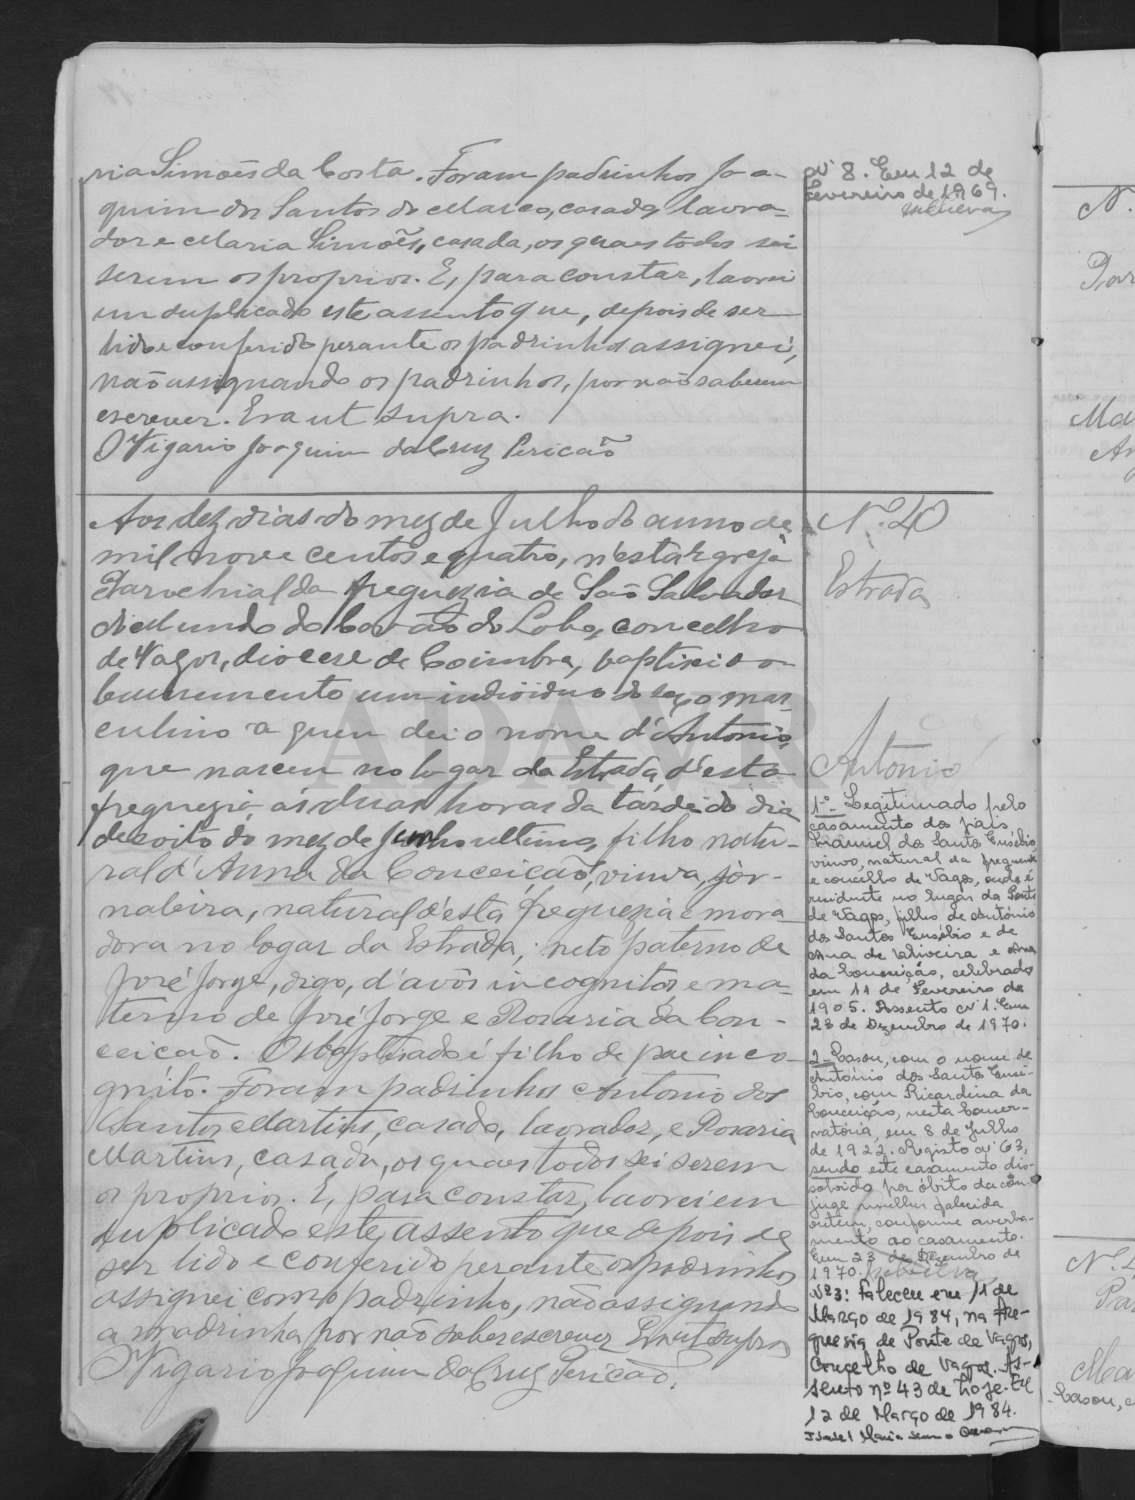 ria Simões da Costa. Foram padrinhos Joa-
quim dos Santos do Marco, casado, lavra-
dor e Maria Simões, casada, os quaes todos sei
serem os proprios. E, para constar, lavrei
em duplicado este assento que, depois de ser
lido e conferido perante os padrinhos assignei,
não assignando os padrinhos, por não saberem
escrever. Era ut supra.
O Vigario Joaquim da Cruz Pericão
Nº 8. Em 12 de
Fevereiro de 1969.
Aos dez dias do mez de Julho do anno de
mil nove centos e quatro, n'esta Egreja
Parochial da freguezia de São Salvador
do Mundo do Covão do Lobo, concelho
de Vagos, diocese de Coimbra, baptisei so-
lemnemente um individuo do sexo mas-
culino a quem dei o nome d'Antonio,
que nasceu no logar da Estrada, d'esta
freguezia, ás duas horas da tarde do dia
dezoito do mez de Junho ultimo, filho natu-
ral d'Anna da Conceição, viuva, jor-
naleira, natural d'esta freguezia e mora
dora no logar da Estrada; neto paterno de
José Jorge, digo, d'avós incognitos, e ma-
terno de José Jorge e Rosaria da Con-
ceicão. O baptisado é filho de pae inco-
gnito. Foram padrinhos Antonio dos
Santos Martins, casado, lavrador, e Rosaria
Martins, casada, os quaes todos sei serem
os proprios. E, para constar, lavrei em
duplicado este assento que depois de
ser lido e conferido perante os padrinhos
assignei com o padrinho, não assignando
a madrinha por não saber escrever. Era ut supra
O Vigario Joaquim da Cruz Pericão.
Nº 40
Estrada
António
1º- Legitimado pelo
casamento dos pais,
Manuel dos Santos Eusébio,
viuvo, natural da freguesia
e concelho de Vagos, onde é
residente no lugar da Ponte
de Vagos, filho de António
dos Santos Eusébio e de
Ana de Oliveira e Ana
da Conceição, celebrado
em 11 de Fevereiro de
1905. Assento nº 1. Em
23 de Dezembro de 1970.
2- Casou, com o nome de
António dos Santos Eusé-
bio, com Ricardina da
Conceição, nesta Conser-
vatória, em 8 de Julho
de 1922. Registo nº 63,
sendo este casamento dis-
solvido por óbito da côn-
juge mulher falecida
ontem, conforme averba-
mento ao casamento.
Em 23 de Dezembro de
1970.
Nº3: Faleceu em 11 de
Março de 1984, na fre-
guesia de Ponte de Vagos,
Concelho de Vagos. As-
sento nº 43 de hoje. Em
12 de Março de 1984.
Isabel Maria
ADAVR